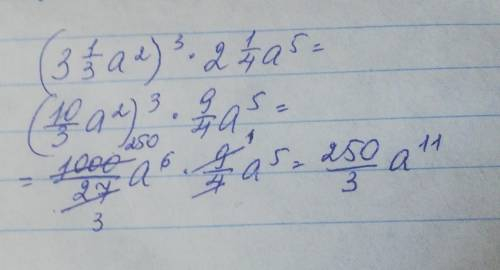 (3 1/3 a²)³ · 2 1/4 a⁵ =
(10/3 a²)³ · 9/4 a⁵ =
250 1
= 1000/27 a⁶ · 9/4 a⁵ = 250/3 a¹¹
3